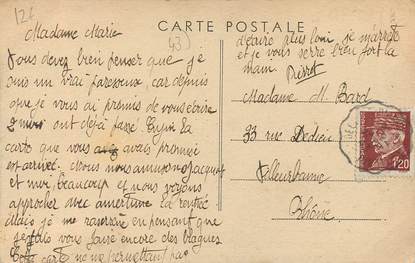 126
CARTE POSTALE
43
Madame Marie
Vous devez bien penser que je
suis un vrai paresseux, car depuis
que je vous ai promis de vous écrire
2 mois ont déjà passé. Enfin la
carte que vous avais promise
est arrivée. Nous nous amusons Jacques
et moi, beaucoup et nous voyons
approcher avec amertume la rentrée
Mais je me rassure en pensant que
je vous faire encore des blagues.
Cette carte ne me permettant pas
d'écrire plus loin je m'arrête
et je vous serre bien fort la
main. Pierrot
Madame M. Bard
33 rue Dedieu
Villeurbanne
Rhône
1f20